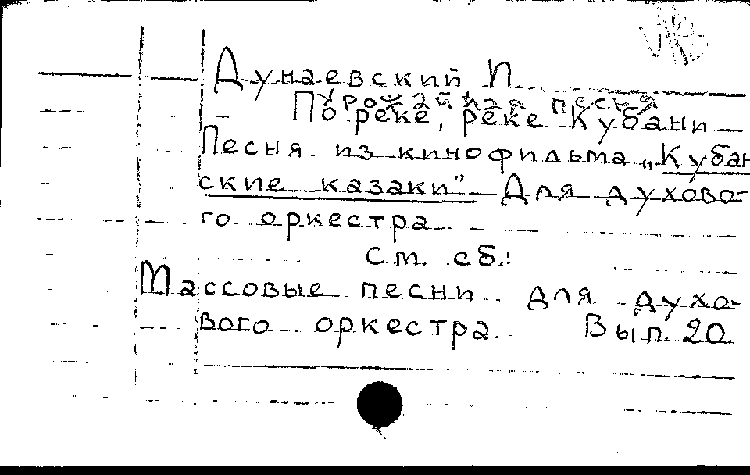 Дунаевский И.
Урожайная песня
По реке, реке Кубани
Песня из кинофильма „Кубан
ские казаки" Для духово-
го оркестра
См. сб.:
Массовые песни для духо-
вого оркестра Вып. 20